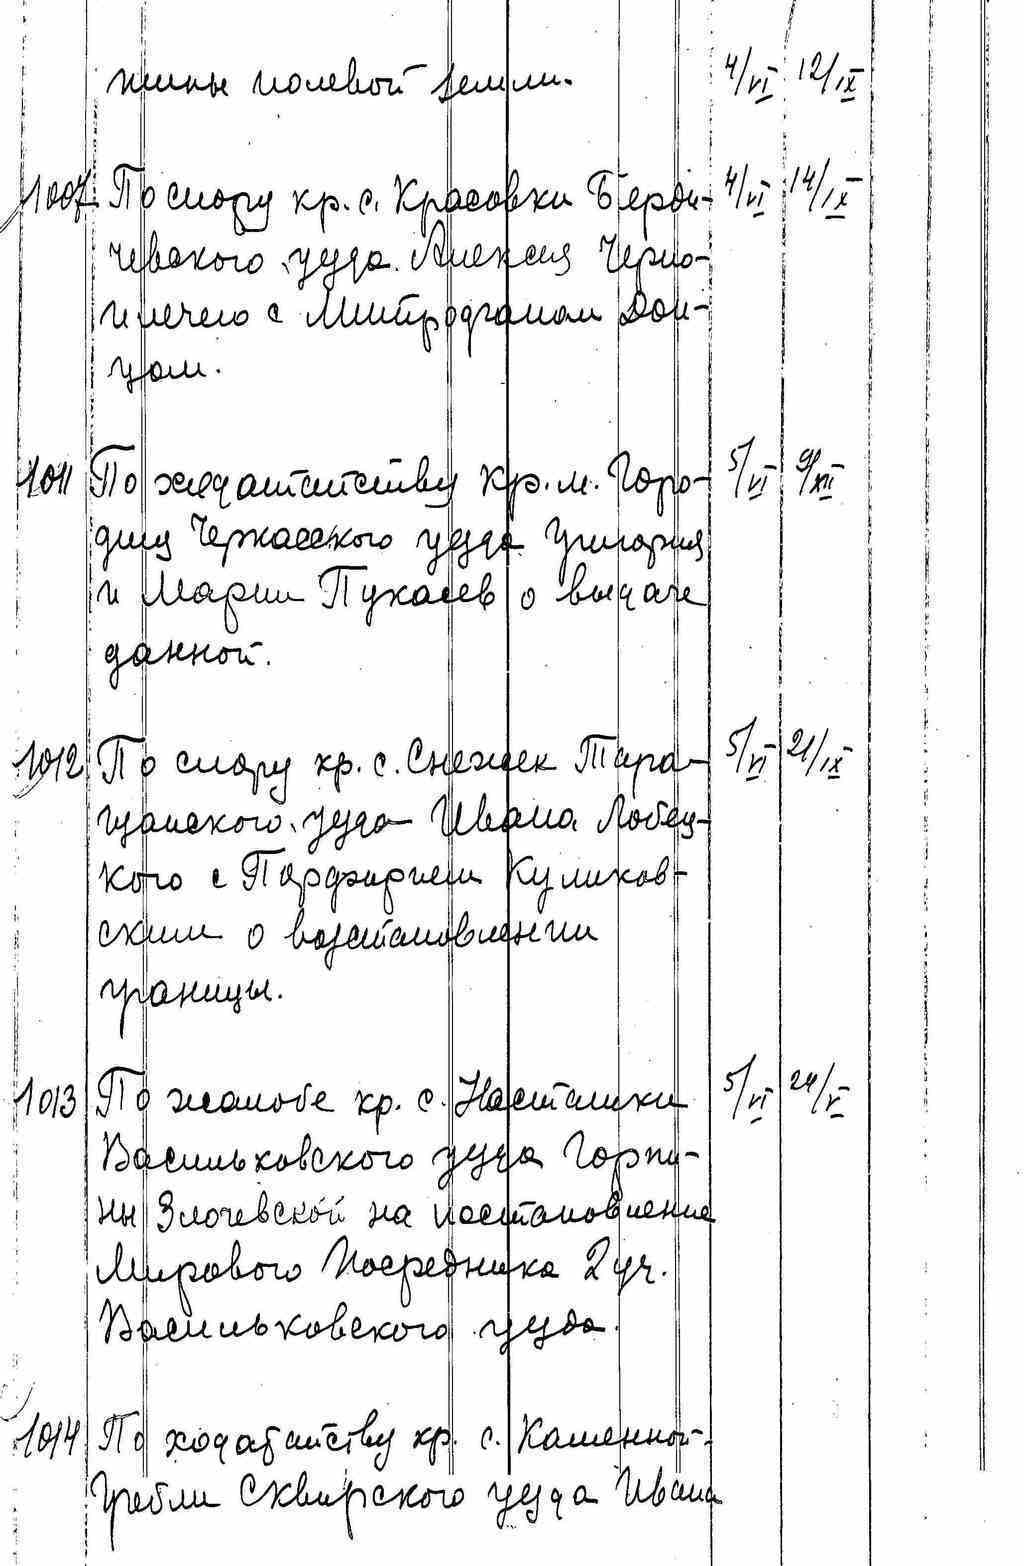 жины полевой земли. 4/VI 12/IX
1007 По спору кр. с. Красовки Берди- 4/VI 14/IX
чевского уезда Алексея Черно-
плечего с Митрофаном Дон-
цом.
1011 По ходатайству кр. м. Горо- 5/VI 9/XII
дища Черкасского уезда Григория
и Марии Пукасев о выдаче
данной.
1012 По спору кр. с. Снежек Тара- 5/VI 21/IX
щанского уезда Ивана Лобец-
кого с Порфирием Куликов-
ским о возстановлении
границы.
1013 По жалобе кр. с. Насташки 5/VI 24/V
Васильковского уезда Горпи-
ны Злочевской на постановление
Мирового Посредника 2 уч.
Васильковского уезда.
1014 По ходатайству кр. с. Каменной-
Гребли Сквирского уезда Ивана